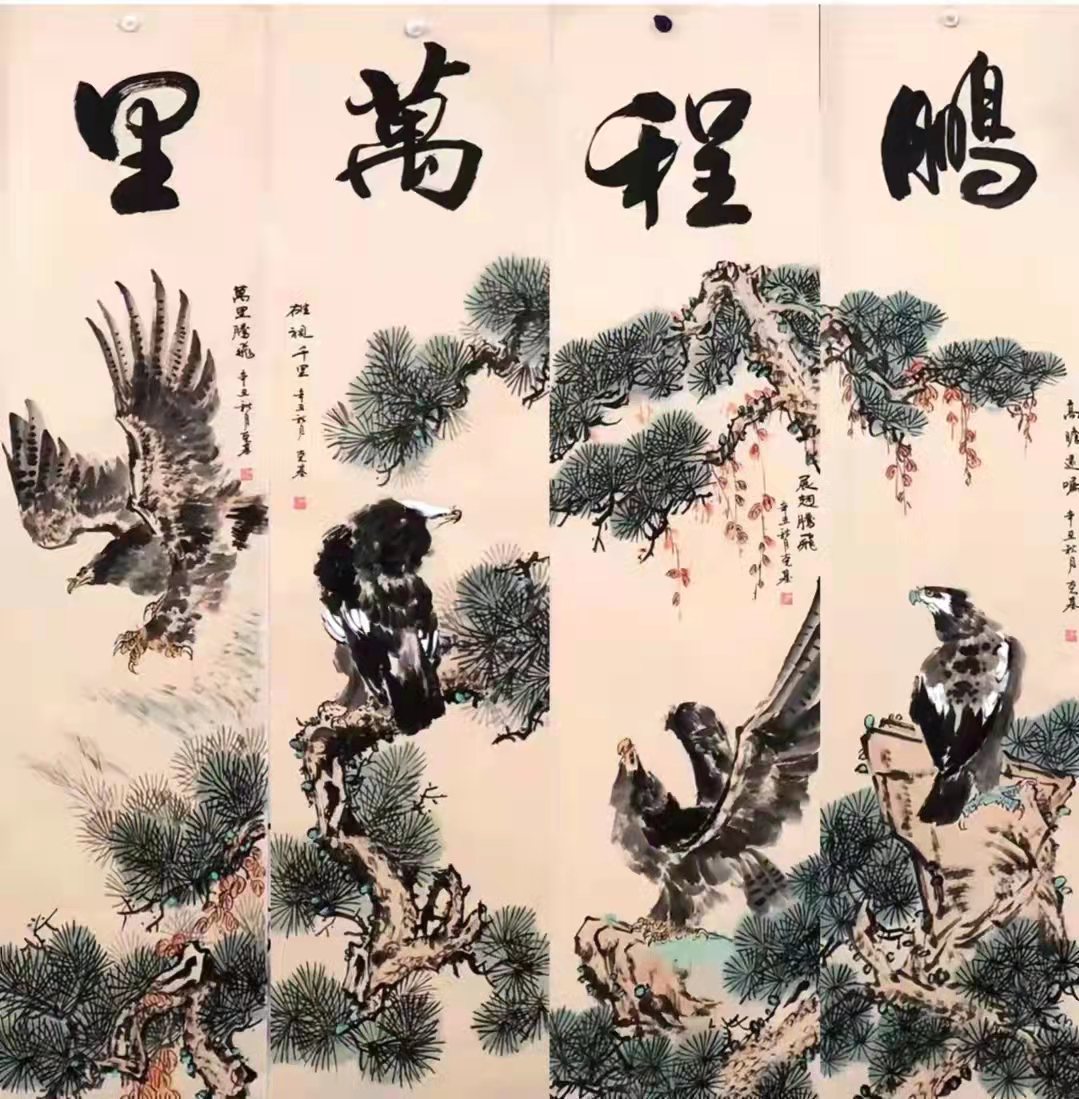 鵬
程
萬
里
高瞻遠矚 辛丑秋月
展翅騰飛
辛丑秋月
雄視千里 辛丑秋月
萬里騰飛 辛丑秋月